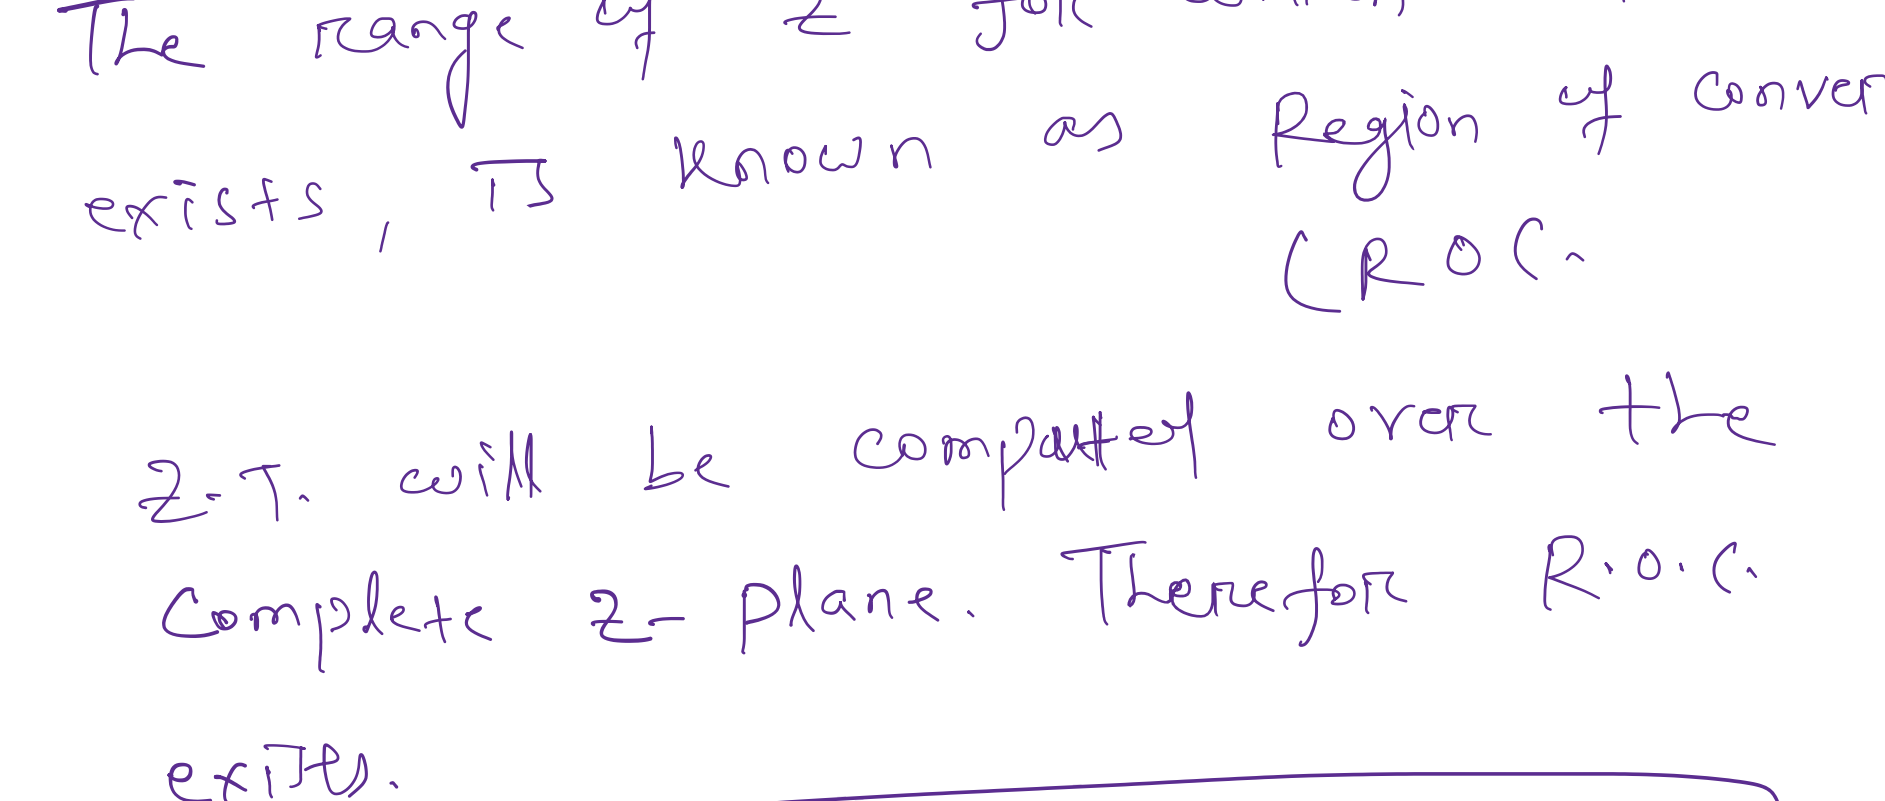 The range of z for
exists, is known as Region of conver
(R O C.
Z.T. will be computed over the
Complete z- plane. Therefor R.O.C.
exits.